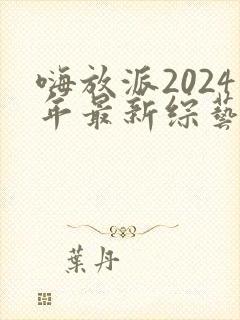 嗨放派2024
年最新综藝
葉丹